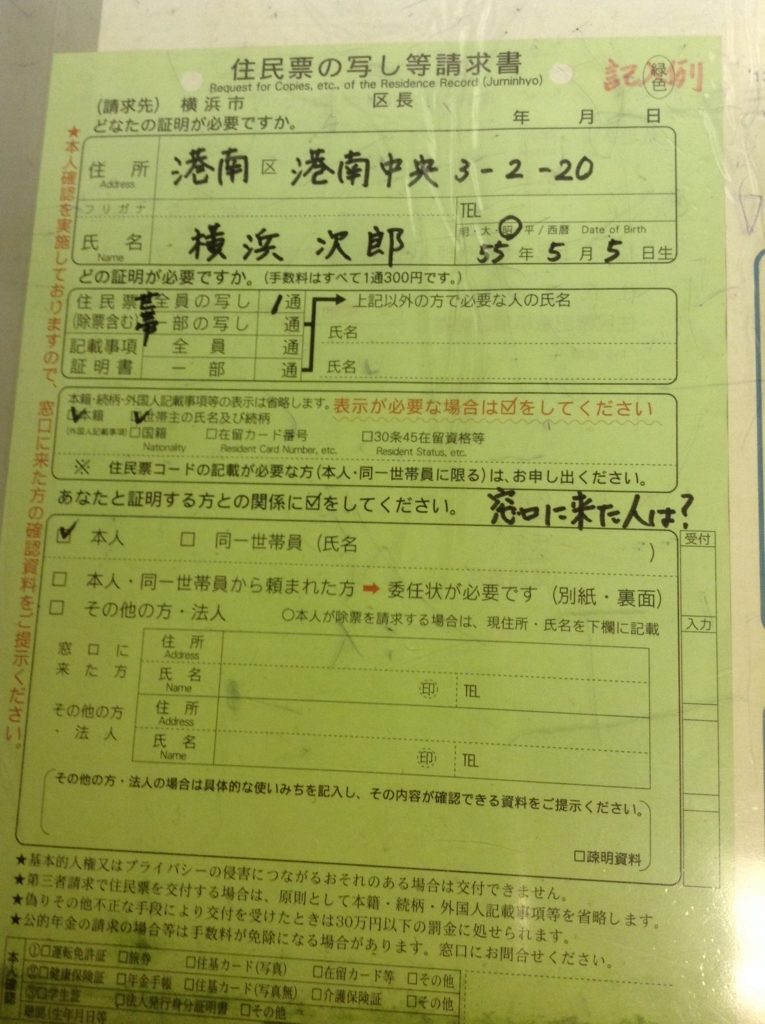 住民票の写し等請求書
Request for Copies, etc., of the Residence Record (Juminhyo)
記入例
緑色
(請求先) 横浜市 区長
年 月 日
どなたの証明が必要ですか。
住所 Address 港南区 港南中央 3-2-20
フリガナ
TEL
氏名 Name 横浜 次郎
明・大・昭・平/西暦 Date of Birth
55年5月5日生
どの証明が必要ですか。(手数料はすべて1通300円です。)
住民票 世帯 全員の写し 1通
上記以外の方で必要な人の氏名
(除票含む) 一部の写し 通
氏名
記載事項 全員 通
証明書 一部 通
氏名
本籍・続柄・外国人記載事項等の表示は省略します。表示が必要な場合は☑をしてください
☑本籍 ☑世帯主の氏名及び続柄
(外国人記載事項) □国籍 □在留カード番号 □30条45在留資格等
Nationality Resident Card Number, etc. Resident Status, etc.
※ 住民票コードの記載が必要な方(本人・同一世帯員に限る)は、お申し出ください。
あなたと証明する方との関係に☑をしてください。
窓口に来た人は?
☑ 本人 □ 同一世帯員(氏名 )
受付
□ 本人・同一世帯員から頼まれた方➡委任状が必要です(別紙・裏面)
□ その他の方・法人 ○本人が除票を請求する場合は、現住所・氏名を下欄に記載
入力
窓口に来た方
住所 Address
氏名 Name 印 TEL
その他の方・法人
住所 Address
氏名 Name 印 TEL
その他の方・法人の場合は具体的な使いみちを記入し、その内容が確認できる資料をご提示ください。
□疎明資料
★基本的人権又はプライバシーの侵害につながるおそれのある場合は交付できません。
★第三者請求で住民票を交付する場合は、原則として本籍・続柄・外国人記載事項等を省略します。
★偽りその他不正な手段により交付を受けたときは30万円以下の罰金に処せられます。
★公的年金の請求の場合等は手数料が免除になる場合があります。窓口にお問合せください。
本人確認
①□運転免許証 □旅券 □住基カード(写真) □在留カード等 □その他
②□健康保険証 □年金手帳 □住基カード(写真無) □介護保険証 □その他
③□学生証 □法人発行身分証明書 □その他
聴聞(生年月日等
★本人確認を実施しておりますので、窓口に来た方の確認資料をご提示ください。